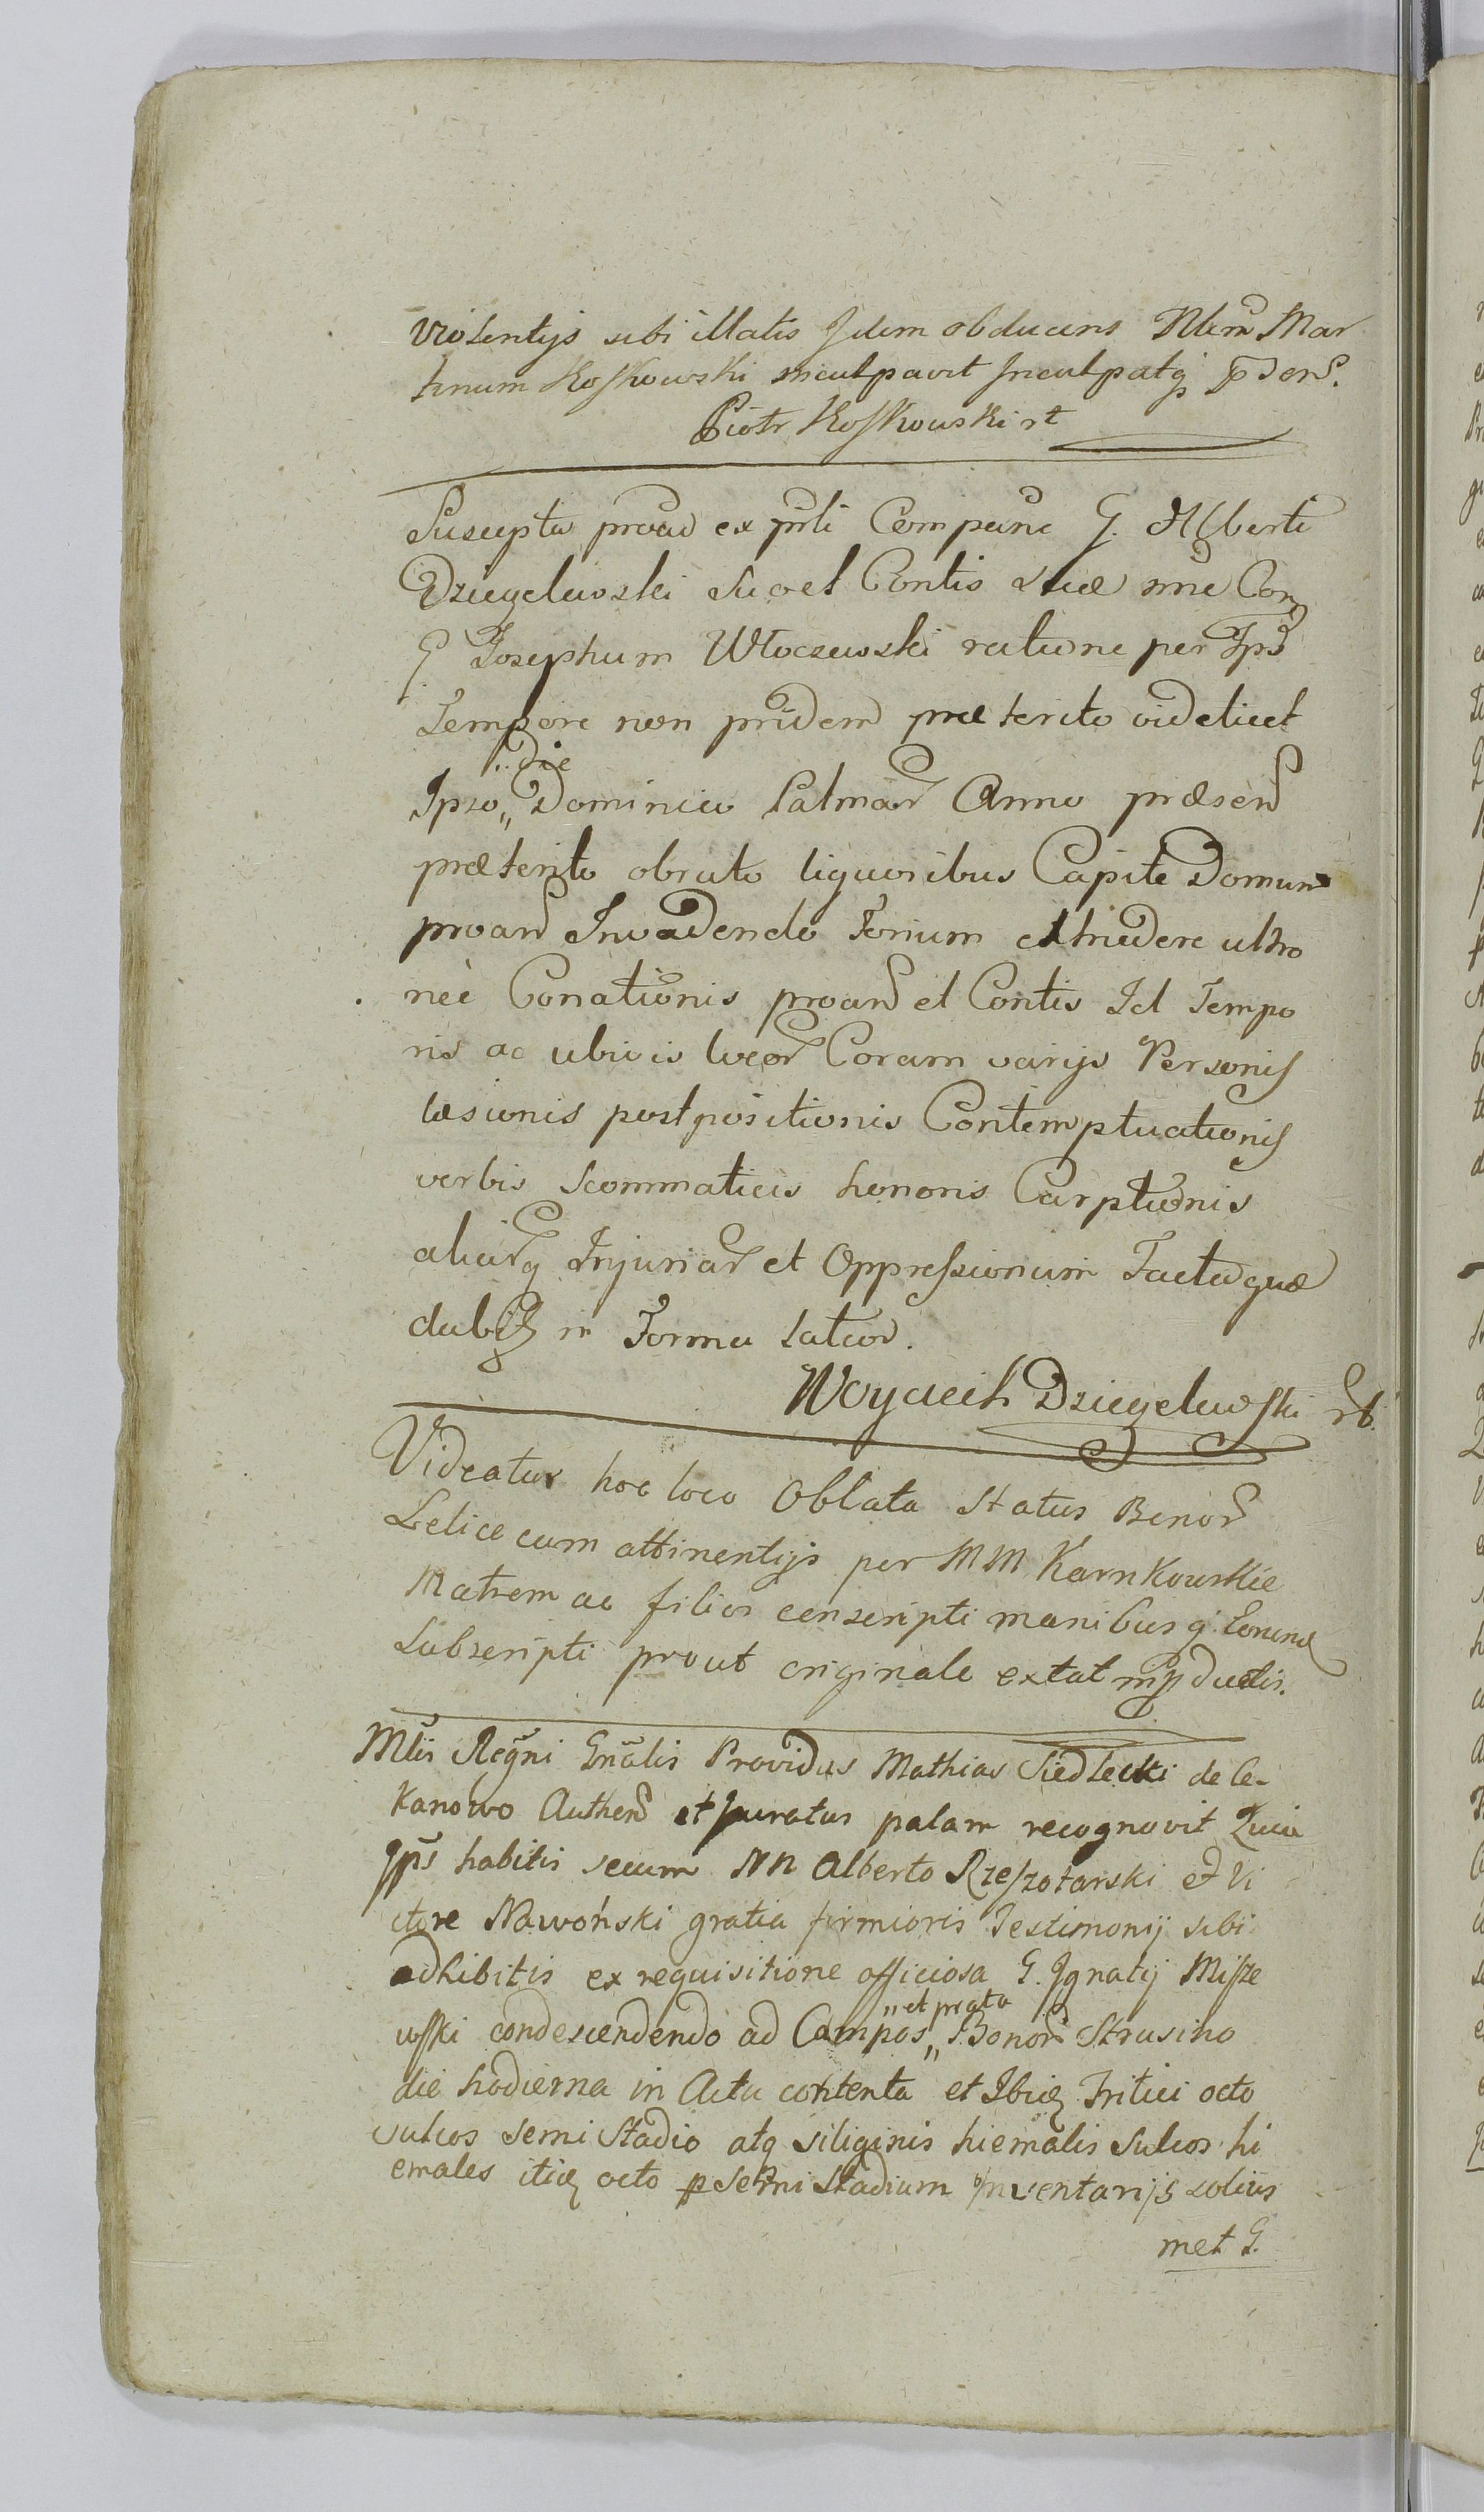 violentijs sibi illatis Idem obducens Nlem Mar
tinum Kosskowski inculpavit Inculpatq
Piotr Kosskowski
Suscepta ex Comparne G. Alberti
Dziegelewski Suo et Contis suæ nne Con
G. Josephum Włoczewski ratione per Ips
Tempore non pridem præterito videlicet
die
Ipso Dominico Palmar Anno præsen
præterito obruto liquoribus Capite Domum
proan Invadendo Forium extrudere ultro
neé Conationis proan et Contis Id Tempo
ris ac ubivis locor Coram varijs Personis
læsionis postpositionis Contemptuationis
verbis Scommaticis honoris Carptionis
aliarq Injuriar et Oppressionum Facta quæ
dabit in Forma latior.
Woyciech Dziegelewski
Videatur hoc loco Oblata Status Bonor
Lelice cum attinentijs per MM Karnkowskie
Matrem ac filios conscripti manibus q Eorund
Subscripti prout originale extat
Mlis Regni Gnalis Providus Mathias Siedlecki de Ce-
kanowo Authen et Juratus palam recognovit Quia
Ips habitis secum NN Alberto Rzeszotarski et Vi
ctore Nawoński gratia firmioris Testimonij sibi
adhibitis ex requisitione officiosa G. Ignatij Missze
wski condescendendo ad Campos Bonor Strusino
et prata
die hodierna in Actu contenta et Ibid Tritici octo
sulcos semi Stadio atq siliginis hiemalis Sulcos hi
emales itid octo p Semi Stadium Inventarijs solius
met G.